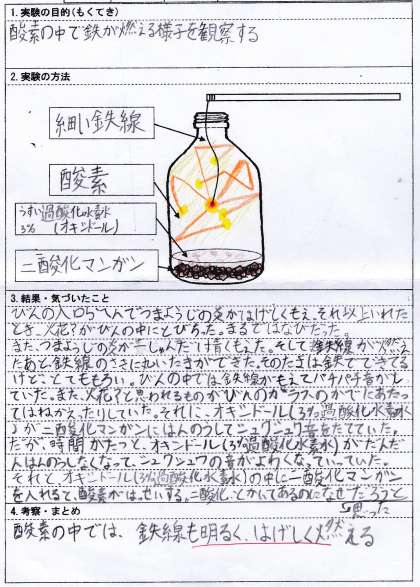 1. 実験の目的(もくてき)
酸素の中で鉄が燃える様子を観察する
2. 実験の方法
細い鉄線
酸素
うすい過酸化水素水
3% (オキシドール)
二酸化マンガン
3. 結果・気づいたこと
びんの入口らへんでつまようじの炎がはげしくもえ、それ以上いれた
とき、火花?がびんの中にとびちった。まるではなびだった。
また、つまようじの炎が一しゅんだけ青くもえた。そして鉄線が燃え
たあと、鉄線のさきに丸いたまができた。そのたまは鉄でできてる
けど、とてももろい。びんの中では鉄線がもえてパチパチ音がし
ていた。また、火花?と思われるものがびんのガラスのかべにあたっ
てはねかえったりしていた。それに、オキシドール(3%過酸化水素水
)が二酸化マンガンにはんのうしてシュワシュワ音をたてていた。
だが、時間がたつと、オキシドール(3%過酸化水素水)がだんだ
んはんのうしなくなって、シュワシュワの音がよわくなっていっていた。
それと、オキシドール(3%過酸化水素水)の中に二酸化マンガン
を入れると、酸素がはっせいする。二酸化とかいてあるのになぜだろうと
思った
4. 考察・まとめ
酸素の中では、鉄線も明るく、はげしく燃える